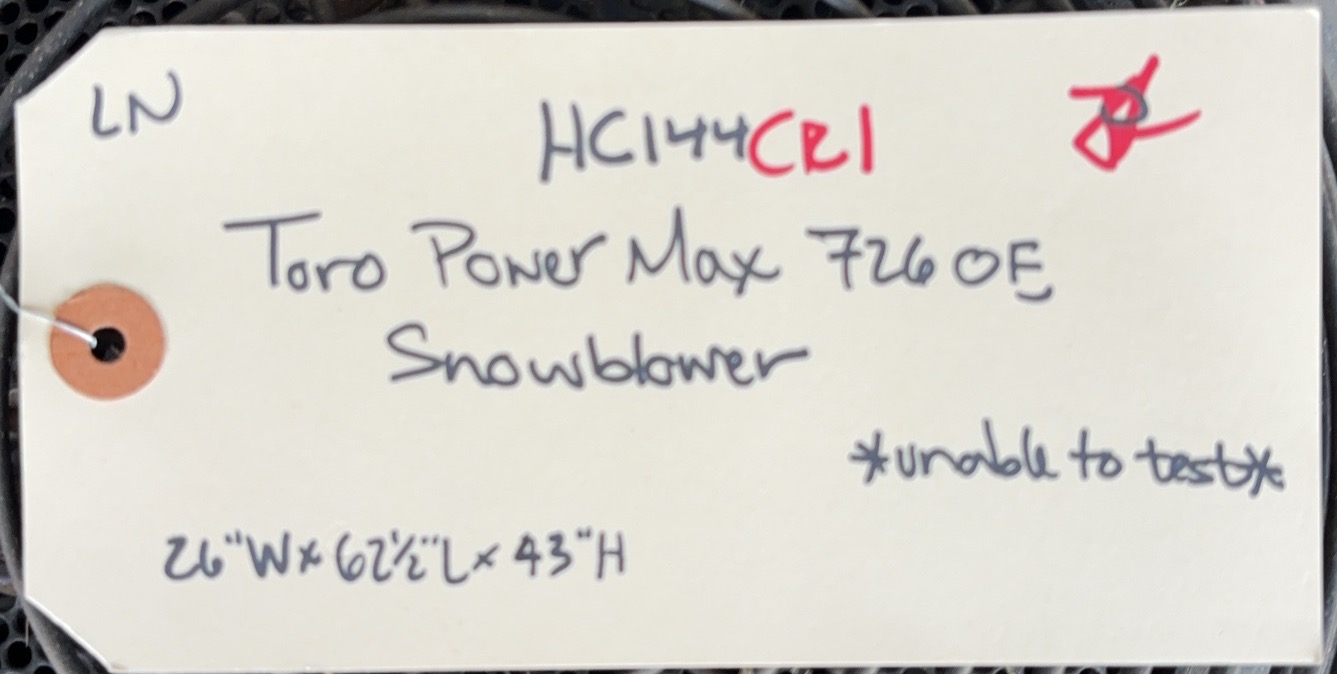 LN
HC144CR1
Toro Power Max 726 OE
Snowblower
*unable to test*
26"W x 62½"L x 43"H